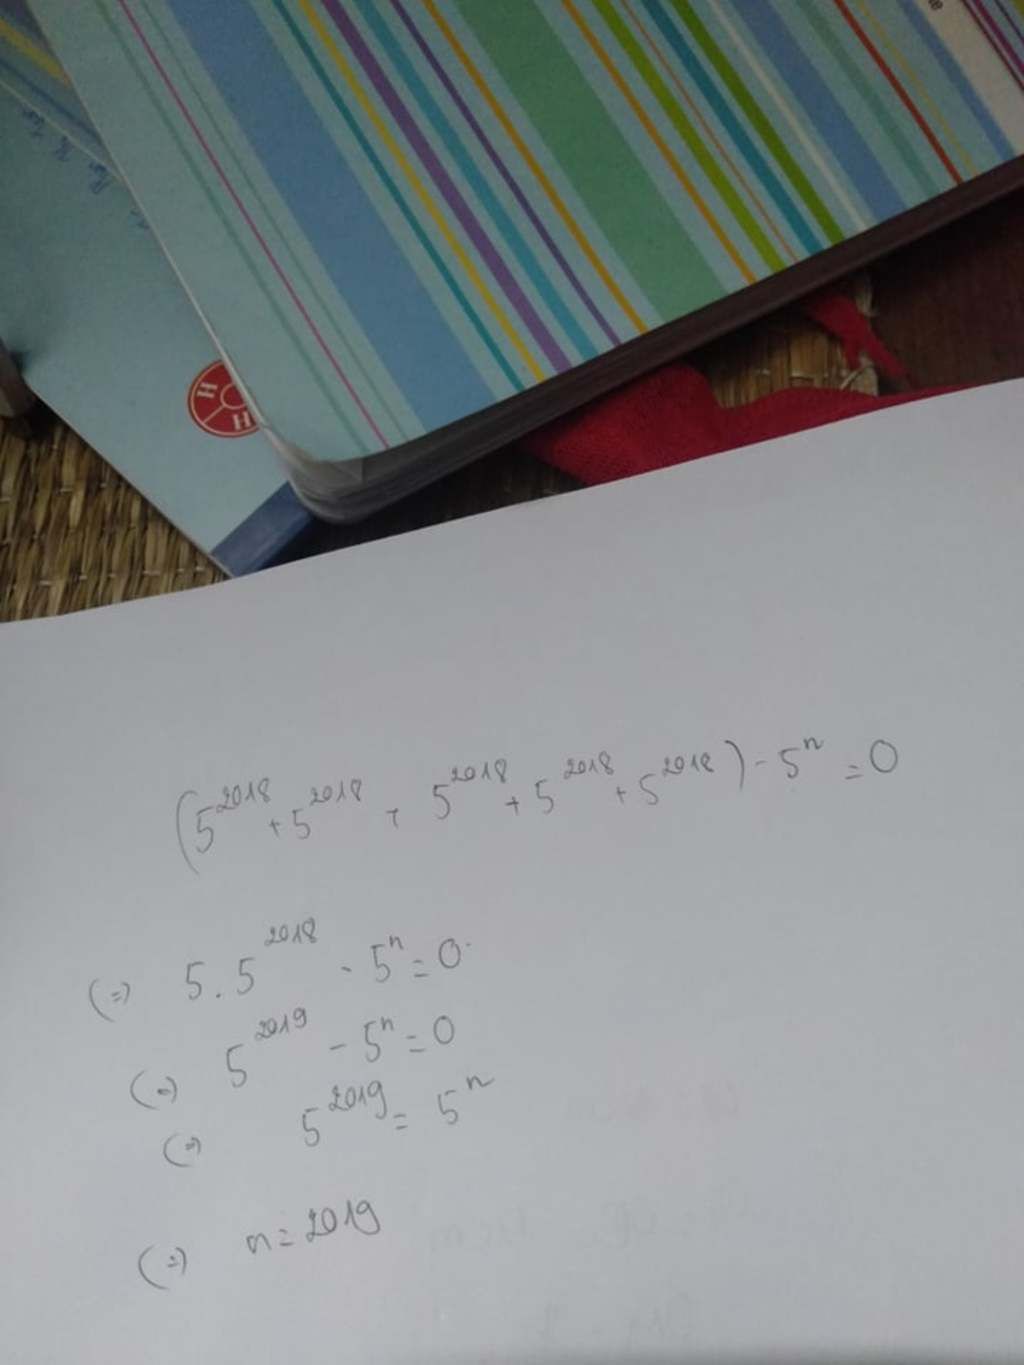 H
H
(5^2018 + 5^2018 + 5^2018 + 5^2018 + 5^2018) - 5^n = 0
(=) 5.5^2018 - 5^n = 0
(=) 5^2019 - 5^n = 0
(=) 5^2019 = 5^n
(=) n = 2019